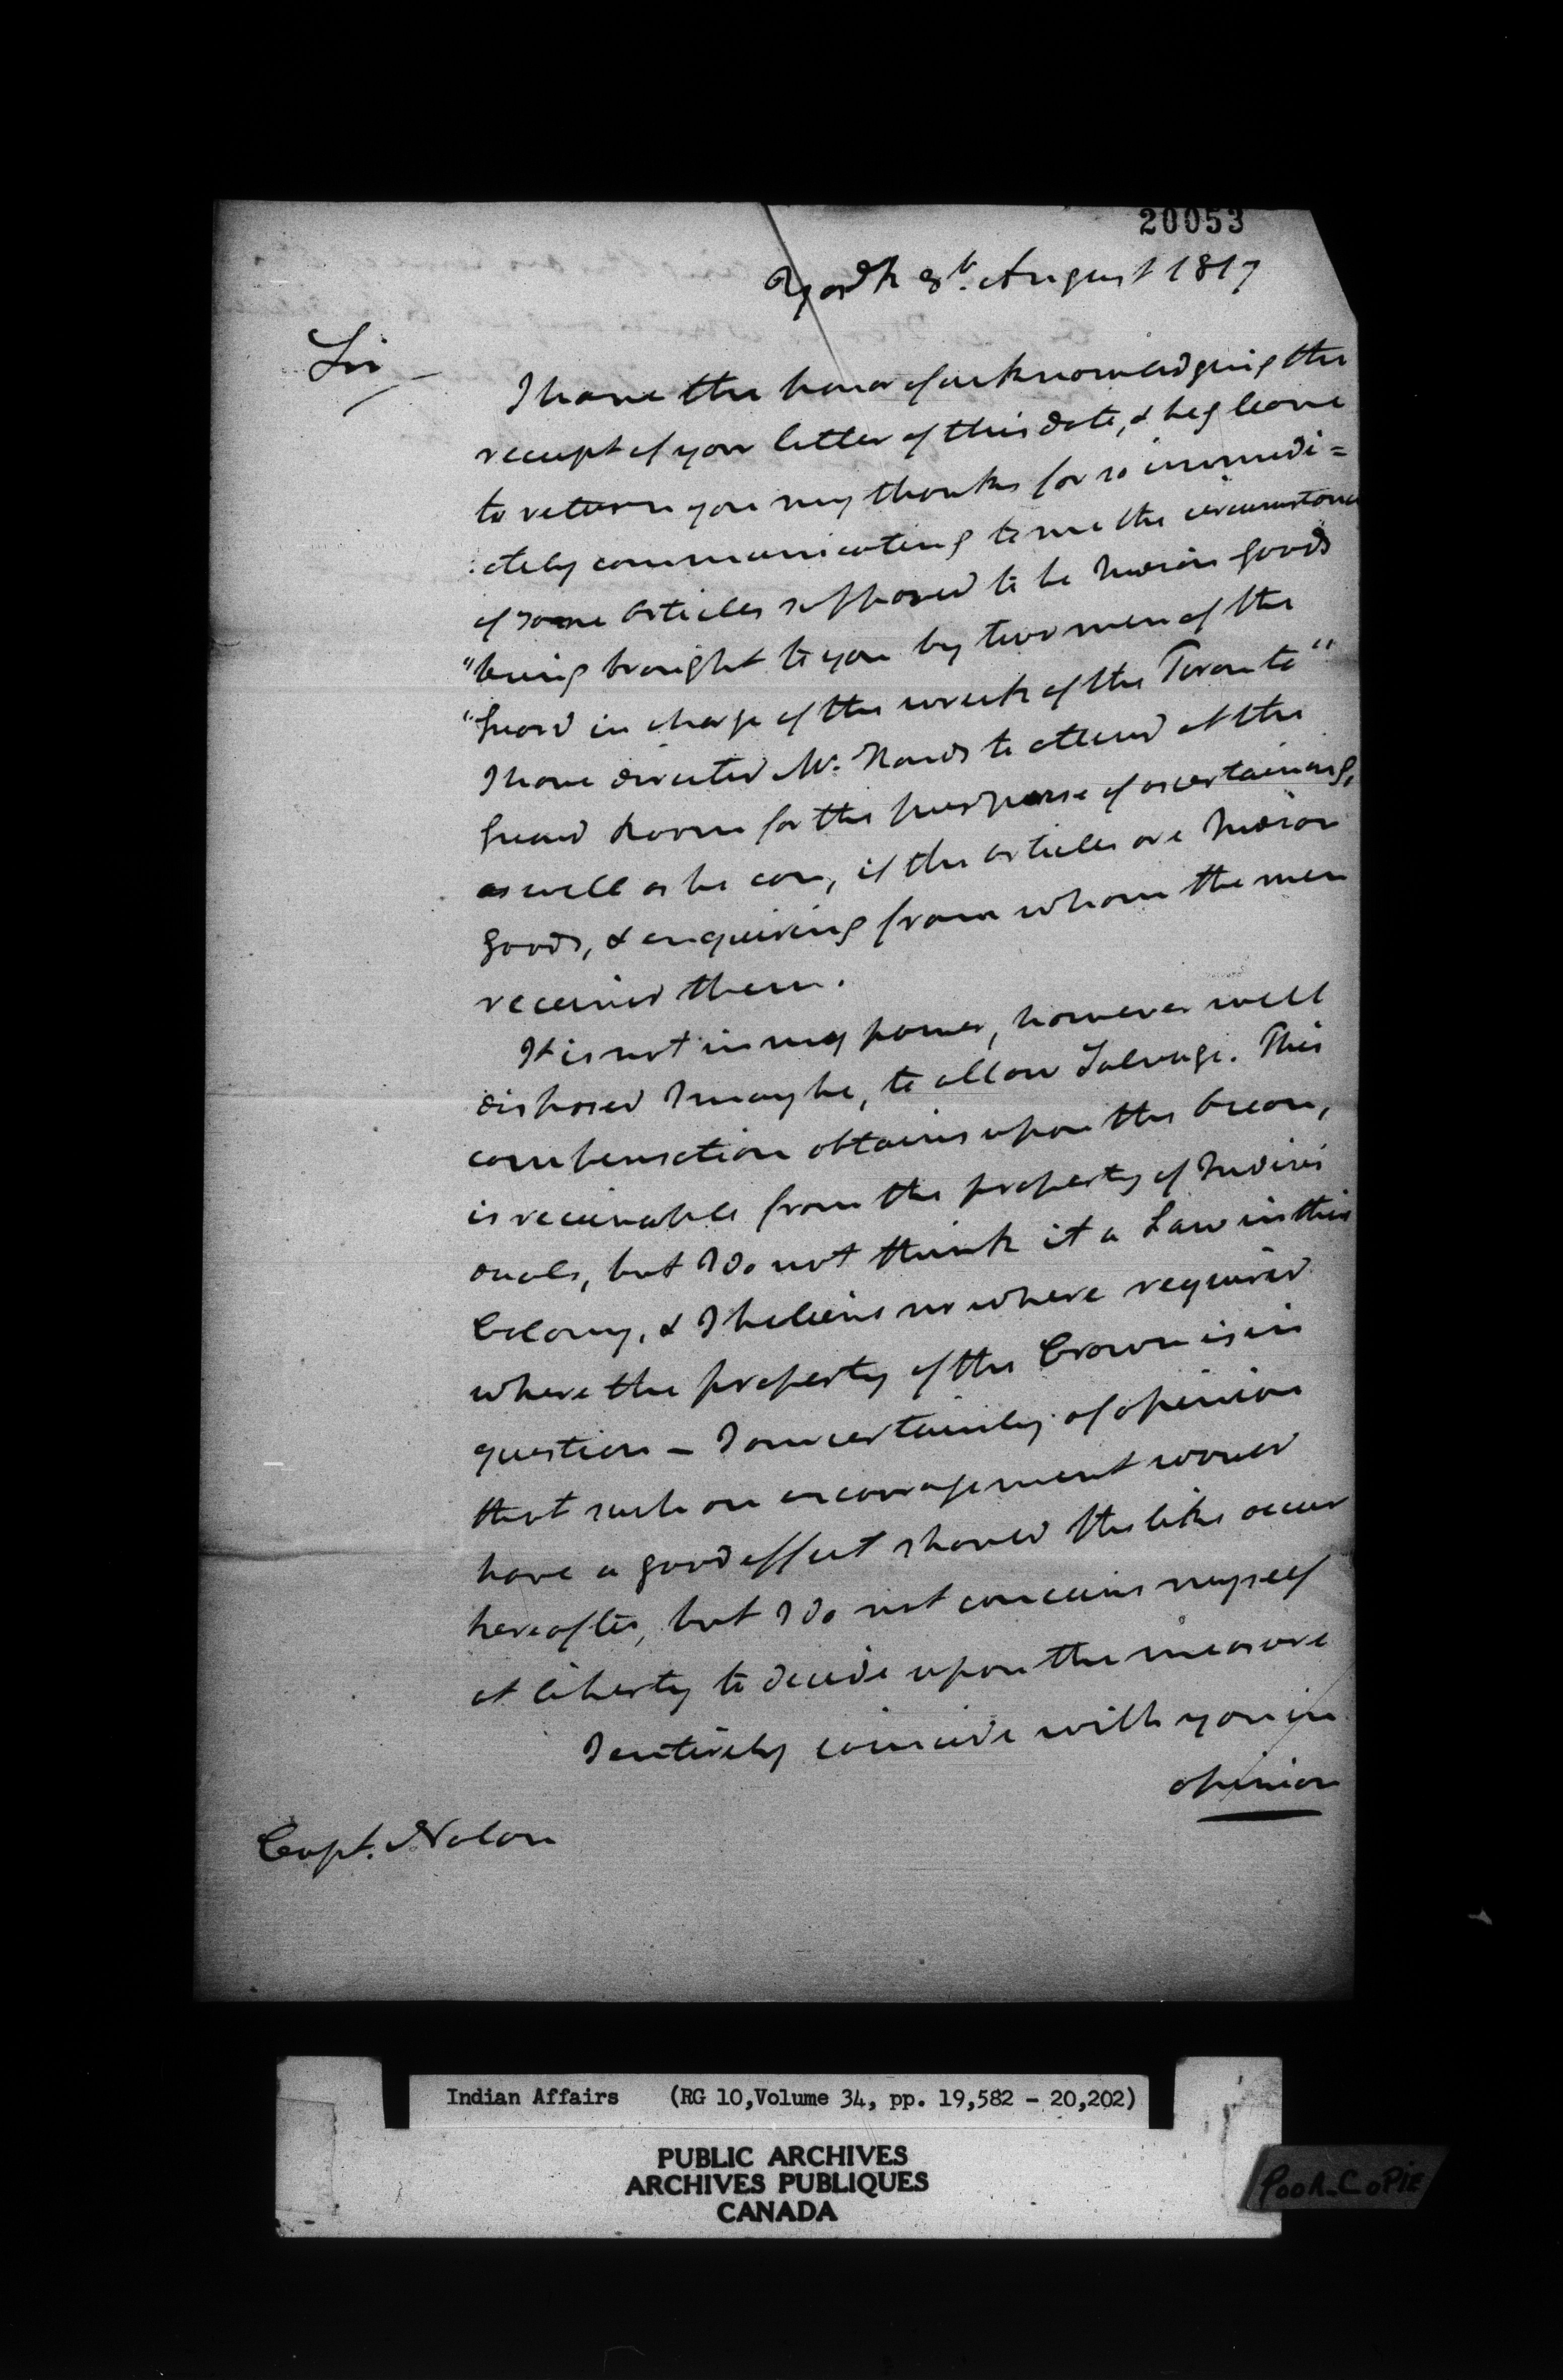 20053
York 8th. August 1817
Sir
I have the honor of acknowledging the
receipt of your letter of this date, & beg leave
to return you my thanks for so immedi=
:ately communicating to me the circumstance
of some articles supposed to be Indian Goods
"being brought to you by two men of the
"Guard in charge of the wreck of the Toronto"
I have directed Mr. to attend at the
Guard Room for the purpose of ascertaining,
as well as he can, if the articles are Indian
Goods, & enquiring from whom the men
received them.
It is not in my power, however well
disposed I may be, to allow Salvage. This
compensation obtains upon the Ocean,
is receivable from the property of Indivi
duals, but I do not think it a Law in this
Colony, & I believe no where required
where the property of the Crown is in
question – I am certainly of opinion
that such an encouragement would
have a good effect should the like occur
hereafter, but I do not conceive myself
at liberty to decide upon the measure
I entirely coincide with you in
opinion
Capt. Nolan
Indian Affairs (RG 10,Volume 34, pp. 19,582 - 20,202)
PUBLIC ARCHIVES
ARCHIVES PUBLIQUES
CANADA
POOR COPIE